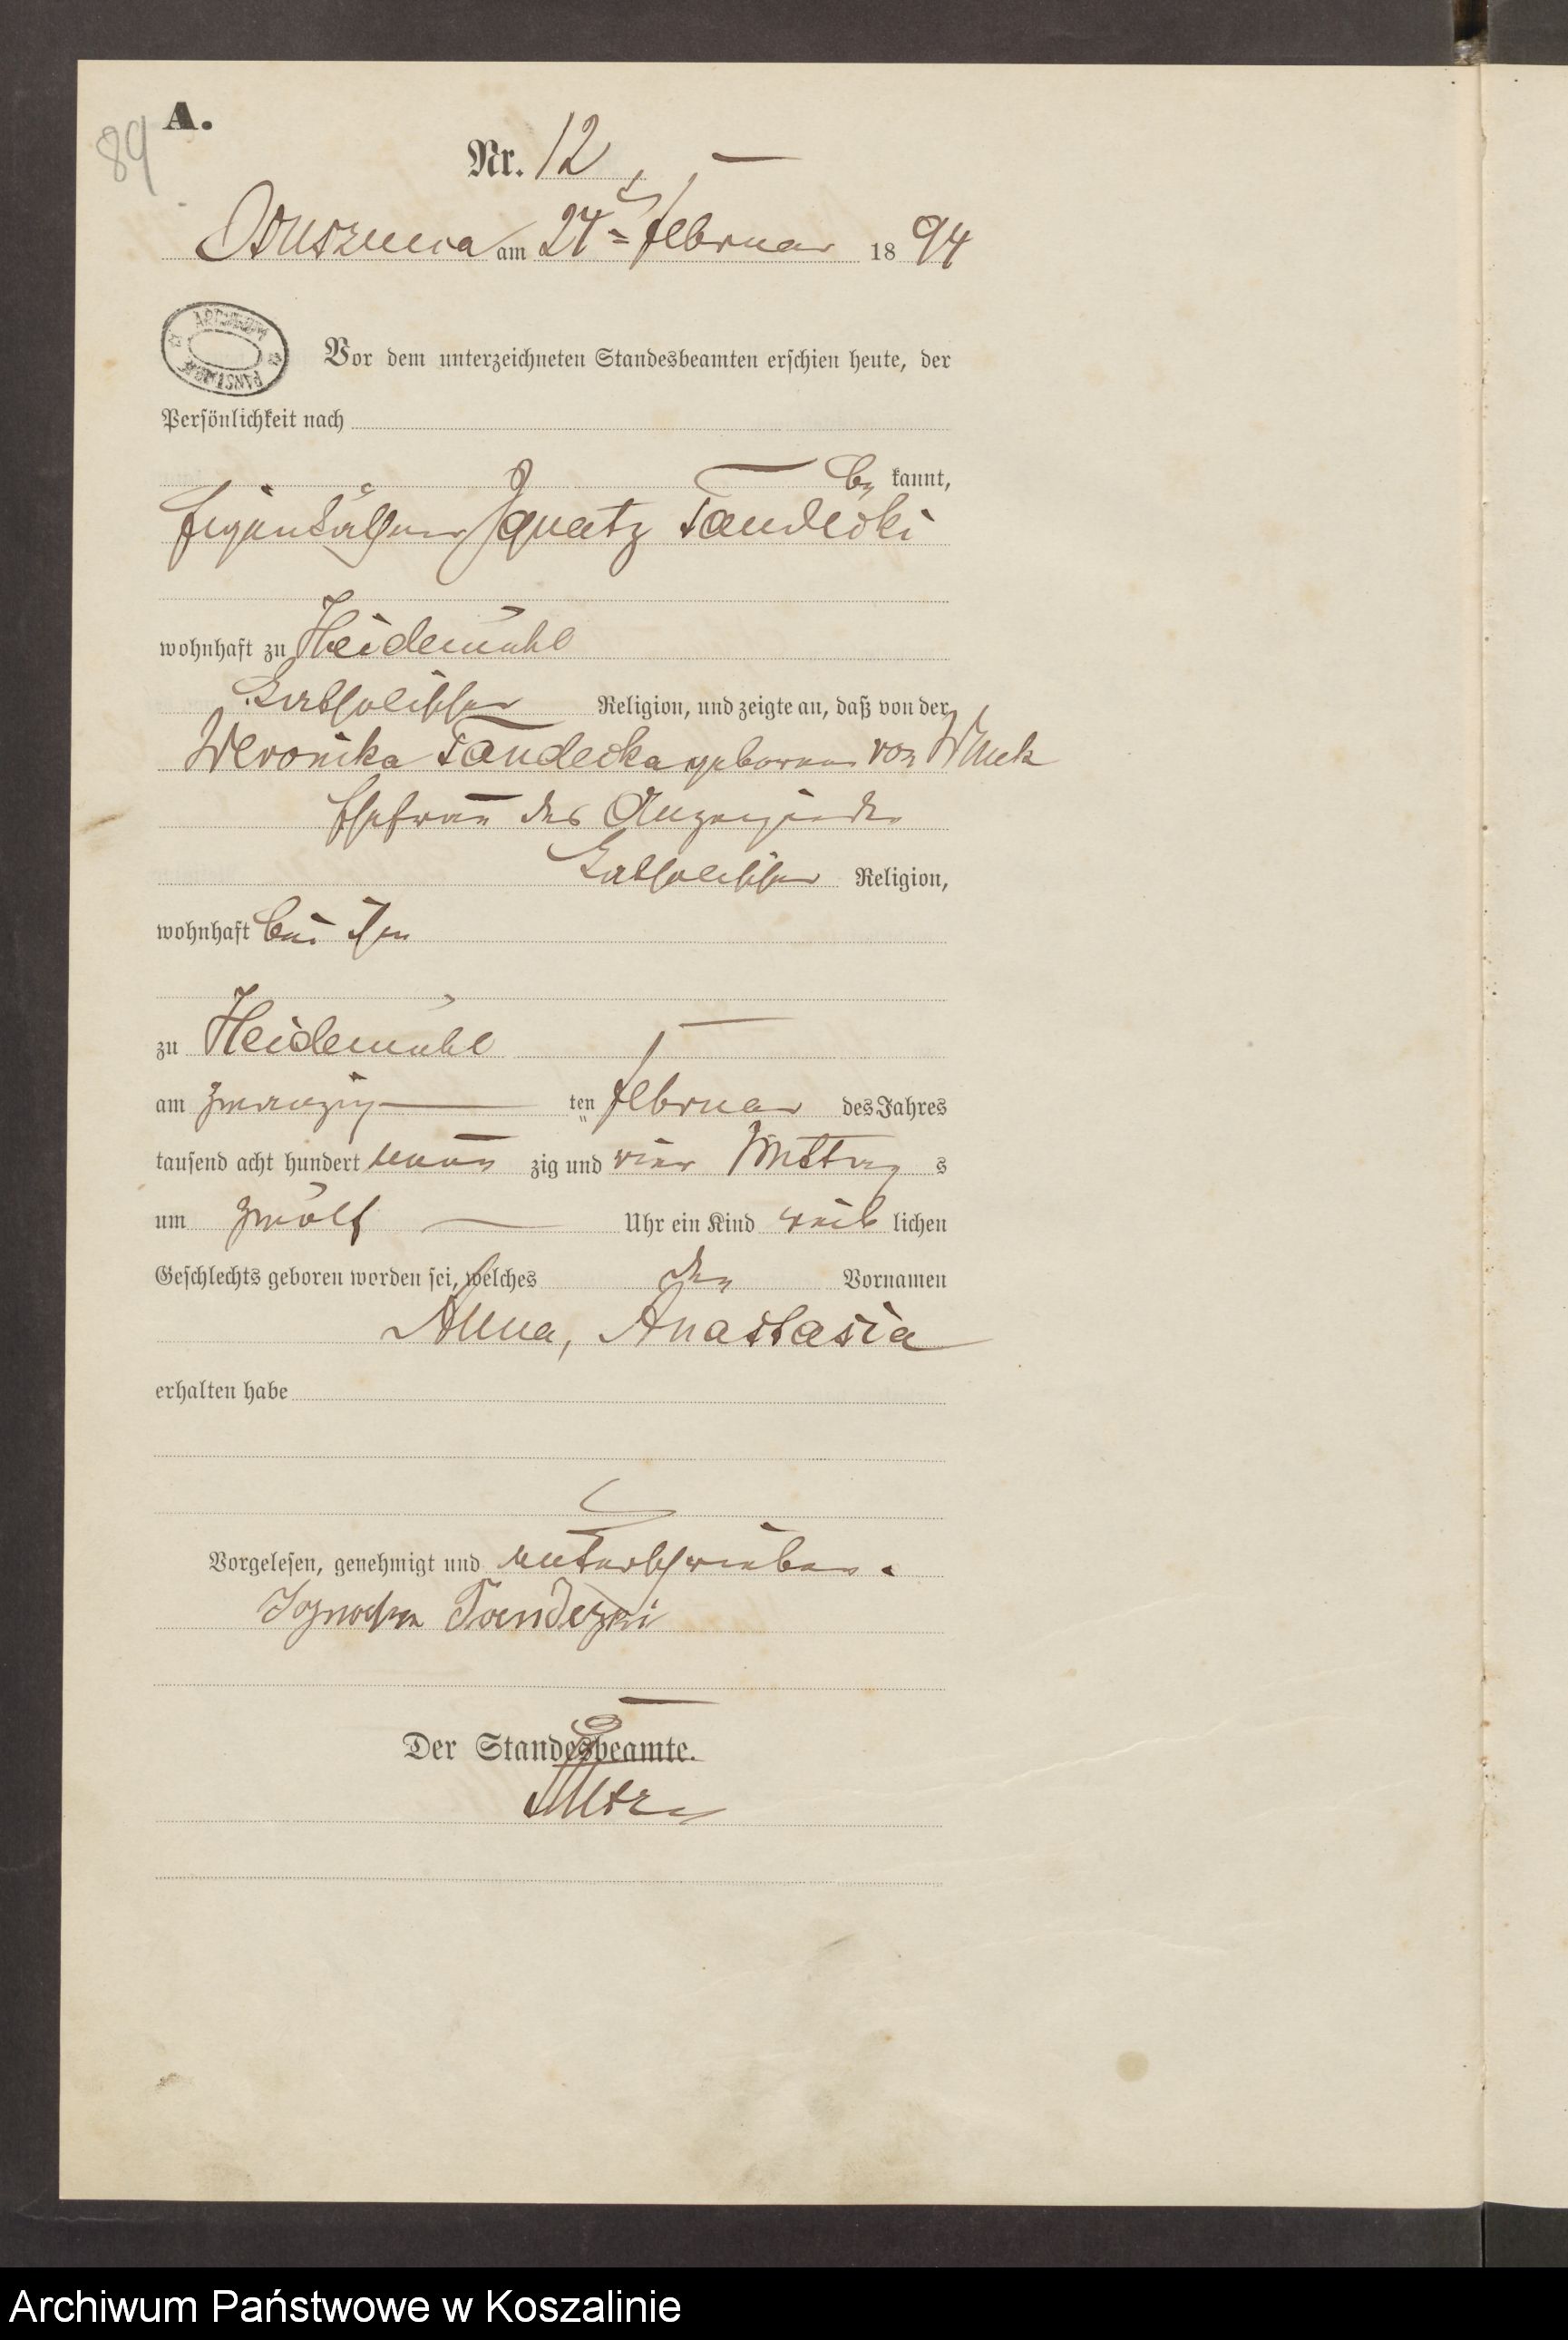 89
A.
Nr. 12
Ossuszniça am 24ten Februar 1894
ARCHIWUM PAŃSTWOWE
Vor dem unterzeichneten Standesbeamten erschien heute, der
Persönlichkeit nach
be kannt,
Eigenkäthner Ignatz Tandecki
wohnhaft zu Heidemühl
katholischer Religion, und zeigte an, daß von der
Weronika Tandecka geborenen von
Ehefrau des Anzeigenden
katholischer Religion,
wohnhaft bei ihm
zu Heidemühl
am zwanzig ten Februar des Jahres
tausend acht hundert neun zig und vier Mittag s
um zwölf Uhr ein Kind weib lichen
Geschlechts geboren worden sei, welches den Vornamen
Anna, Anastasia
erhalten habe
Vorgelesen, genehmigt und unterschrieben.
Der Standesbeamte.
Archiwum Państwowe w Koszalinie